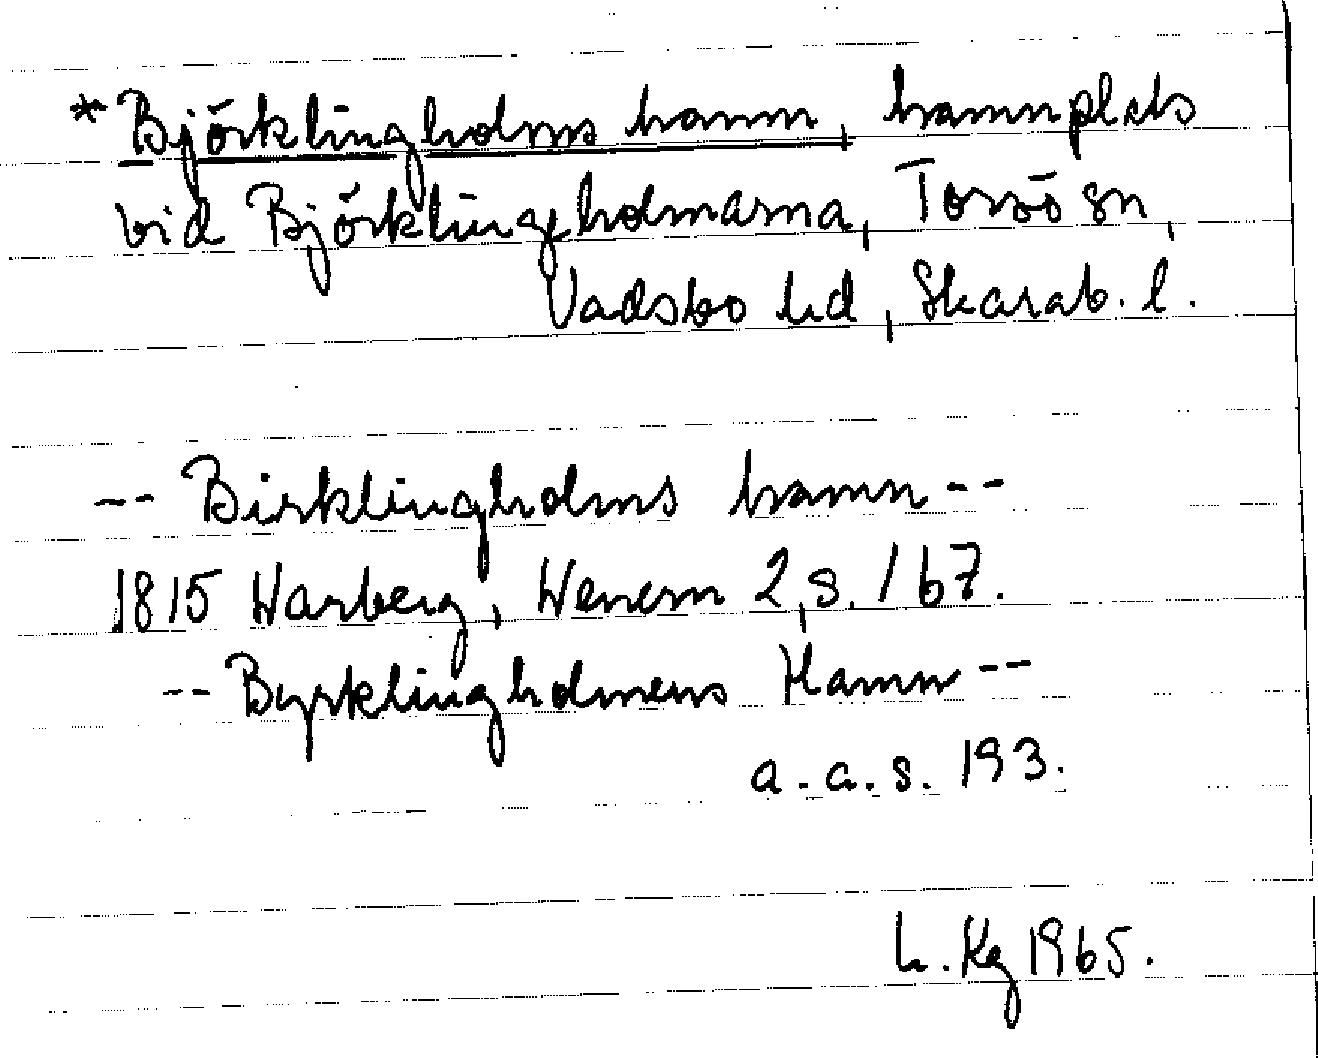 *Björklingholms hamn, hamnplats
vid Björklingeholmarna, Torsö sn,
Vadsbo hd, Skarab. l.
-- Birklingholms hamn --
1815 Warberg, Wenern 2, s. 167.
-- Byrklingholmens Hamn --
a.a.s. 193.
L. Kg 1965.